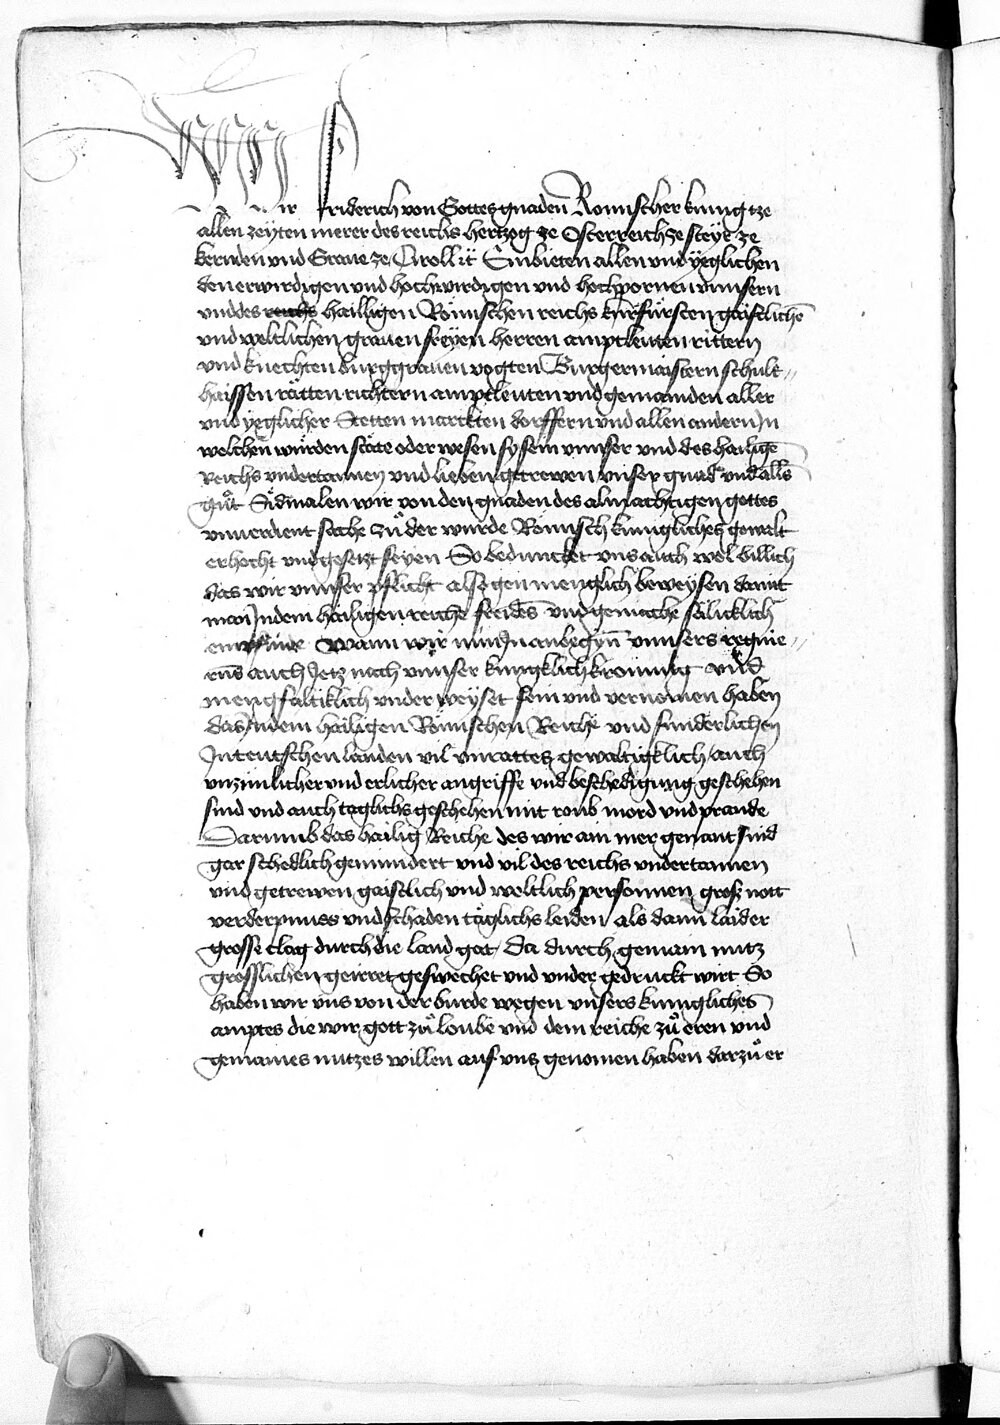 Wir Friderich von Gottes gnaden Romischer kunig tze
allen zeyten merer des reichs hertzog ze Osterreich ze steyr ze
kernden und Graue ze Tiroll ꝛc Embieten allen und yeglichen
den erwirdigen und hochwirdigen und hochpornen unnsern
und des reichs hailligen Römischen reichs kurfürsten gaistlichē
und weltlichen grauen freyen herren amptleuten rittern
und knechten burggrauen vogten Burgermaistern schult-
haissen rätten richtern amptleuten und gemainden aller
und yeglicher Stetten marckten dorffern und allen andern In
welchen wurden state oder wesen sy sein unnser und des hailigē
Reichs undertannen und lieben getrewen unser gnad und alls
gůt Sidmalen wir von den gnaden des almachtigen gottes
unuerdient sache zů der wurde Römisch kunigliches gewalt
erhocht und gesetzt seyen So beduncket uns auch wol billich
das wir unnser pflicht also gen menglich beweysen damit
man In dem hailigen reiche frides und gemache sälicklich
empfinde Wann wir nun In anbegyn unnsers regnie-
rens auch Jetz nach unnser kunigklich kronung und
mengfaltiklich underweyset sein und vernomen haben
das In dem hailigen Römischen Reiche und sunderlichen
In teutschen landen vil unrattes gewaltigklich auch
unzimlicher und erlicher angriffe und beschedigung geschehen
sind und auch taglichs geschehen mit roub mord und prande
Darumb das hailig Reiche des wir ain mer genant sind
gar schedlich gemindert und vil des reichs undertannen
und getrewen gaistlich und weltlich personnen gros nott
verderpnuss und schaden täglichs leiden als dann laider
grosse clag durch die land gat Da durch gemain nutz
grosslichen geirret geswechet und under gedruckt wirt So
haben wir uns von der burde wegen unsers kunigliches
amptes die wir gott zů loube und dem reiche zů eren und
gemaines nutzes willen auf uns genomen haben darzů er